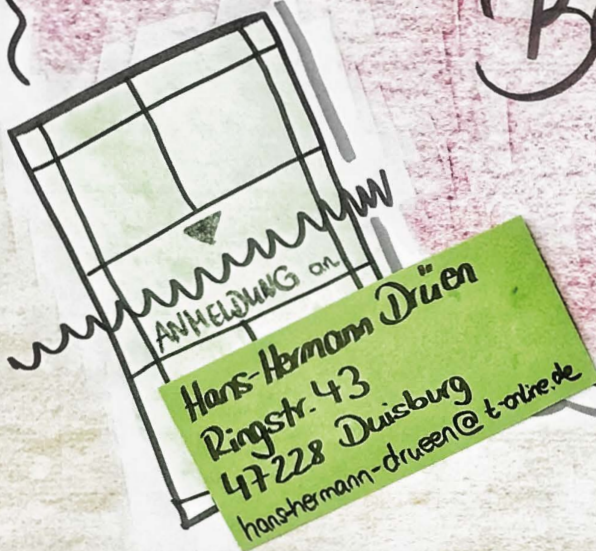 ANMELDUNG an
Hans-Hermann Drüen
Ringstr. 43
47228 Duisburg
hans-hermann-drueen@t-online.de